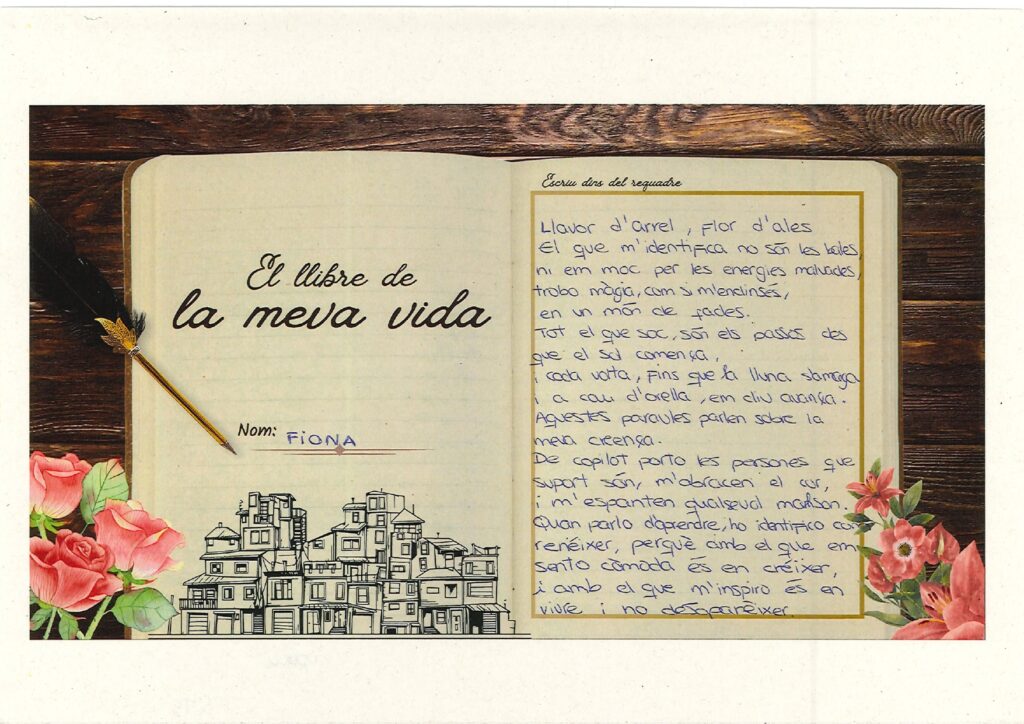 El llibre de
la meva vida
Nom: FIONA
Escriu dins del requadre
Llavor d'arrel, flor d'ales
El que m'identifica no són les bales,
ni em moc per les energies malvades,
trobo màgia, com si m'endinsés,
en un món de fades.
Tot el que soc, són els passos des
que el sol comença,
i cada volta, fins que la lluna s'amaga
i a cau d'orella, em diu avança.
Aquestes paraules parlen sobre la
meva creença.
De copilot porto les persones que
suport són, m'abracen el cor,
i m'espanten qualsevol malson.
Quan parlo d'aprendre, ho identifico com
renéixer, perquè amb el que em
sento còmoda és en créixer,
i amb el que m'inspiro és en
viure i no desaparèixer.